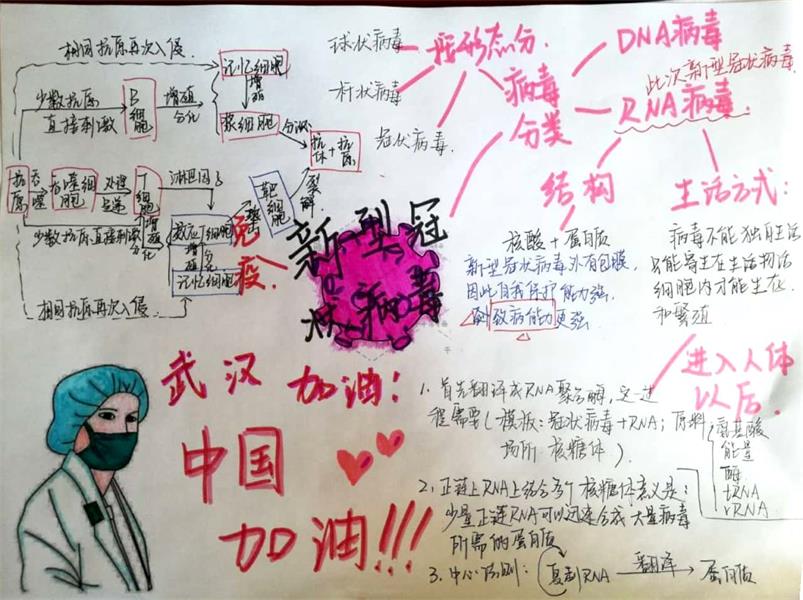 相同抗原再次入侵
记忆细胞
增殖
少数抗原
直接刺激
B细胞
增殖
分化
浆细胞
分泌
抗体+抗原
抗原
吞噬
吞噬细胞
处理
呈递
T细胞
淋巴因子
增殖
分化
少数抗原直接刺激
效应T细胞
增殖
分化
记忆细胞
靶细胞
裂解
相同抗原再次入侵
免疫
新型冠
状病毒
球状病毒
杆状病毒
冠状病毒
按形态分
病毒
分类
DNA病毒
此次新型冠状病毒
RNA病毒
结构
核酸+蛋白质
新型冠状病毒外有包膜,
因此自我保护能力强,
则致病能力更强
生活方式:
病毒不能独自生活
只能寄生在生活物活
细胞内才能生存
和繁殖
进入人体
以后.
武汉加油:
中国
加油!!!
1. 首先翻译成RNA聚合酶,这一过
程需要(模板:冠状病毒+RNA; 原料
氨基酸
能量
酶
tRNA
rRNA
场所 核糖体).
2. 正链上RNA上结合多个核糖体意义是:
少量正链RNA可以迅速合成大量病毒
所需的蛋白质
3. 中心法则: 复制RNA 翻译 蛋白质